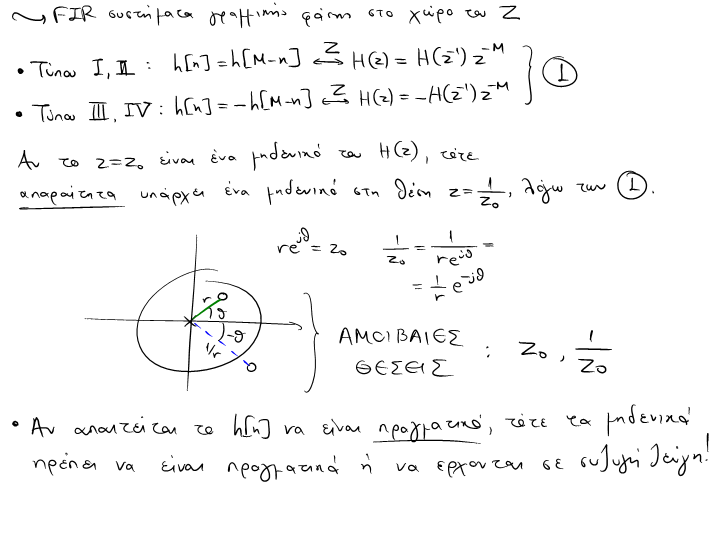 ⤳ FIR συστήματα γραμμικής φάσης στο χώρο του Z
• Τύπου I, II : h[n] = h[M-n] ⟷ᶻ H(z) = H(z⁻¹) z⁻ᴹ
• Τύπου III, IV : h[n] = -h[M-n] ⟷ᶻ H(z) = -H(z⁻¹) z⁻ᴹ } ①
Αν το z=z₀ είναι ένα μηδενικό του H(z), τότε
απαραίτητα υπάρχει ένα μηδενικό στη θέση z = 1/z₀, λόγω των ①.
re^{jθ} = z₀ 1/z₀ = 1/(re^{jθ}) =
= 1/r e^{-jθ}
r θ
-θ
1/r
ΑΜΟΙΒΑΙΕΣ
ΘΕΣΕΙΣ : z₀, 1/z₀
• Αν απαιτείται το h[n] να είναι πραγματικό, τότε τα μηδενικά
πρέπει να είναι πραγματικά ή να έρχονται σε συζυγή ζεύγη!